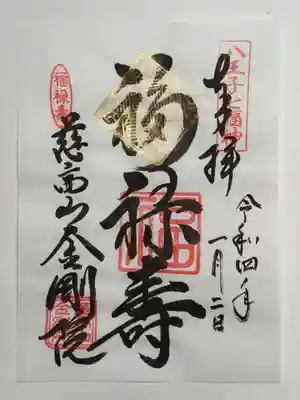 八王子七福神
奉拝
令和四年
一月二日
福禄寿
福禄寿
慈高山金剛院